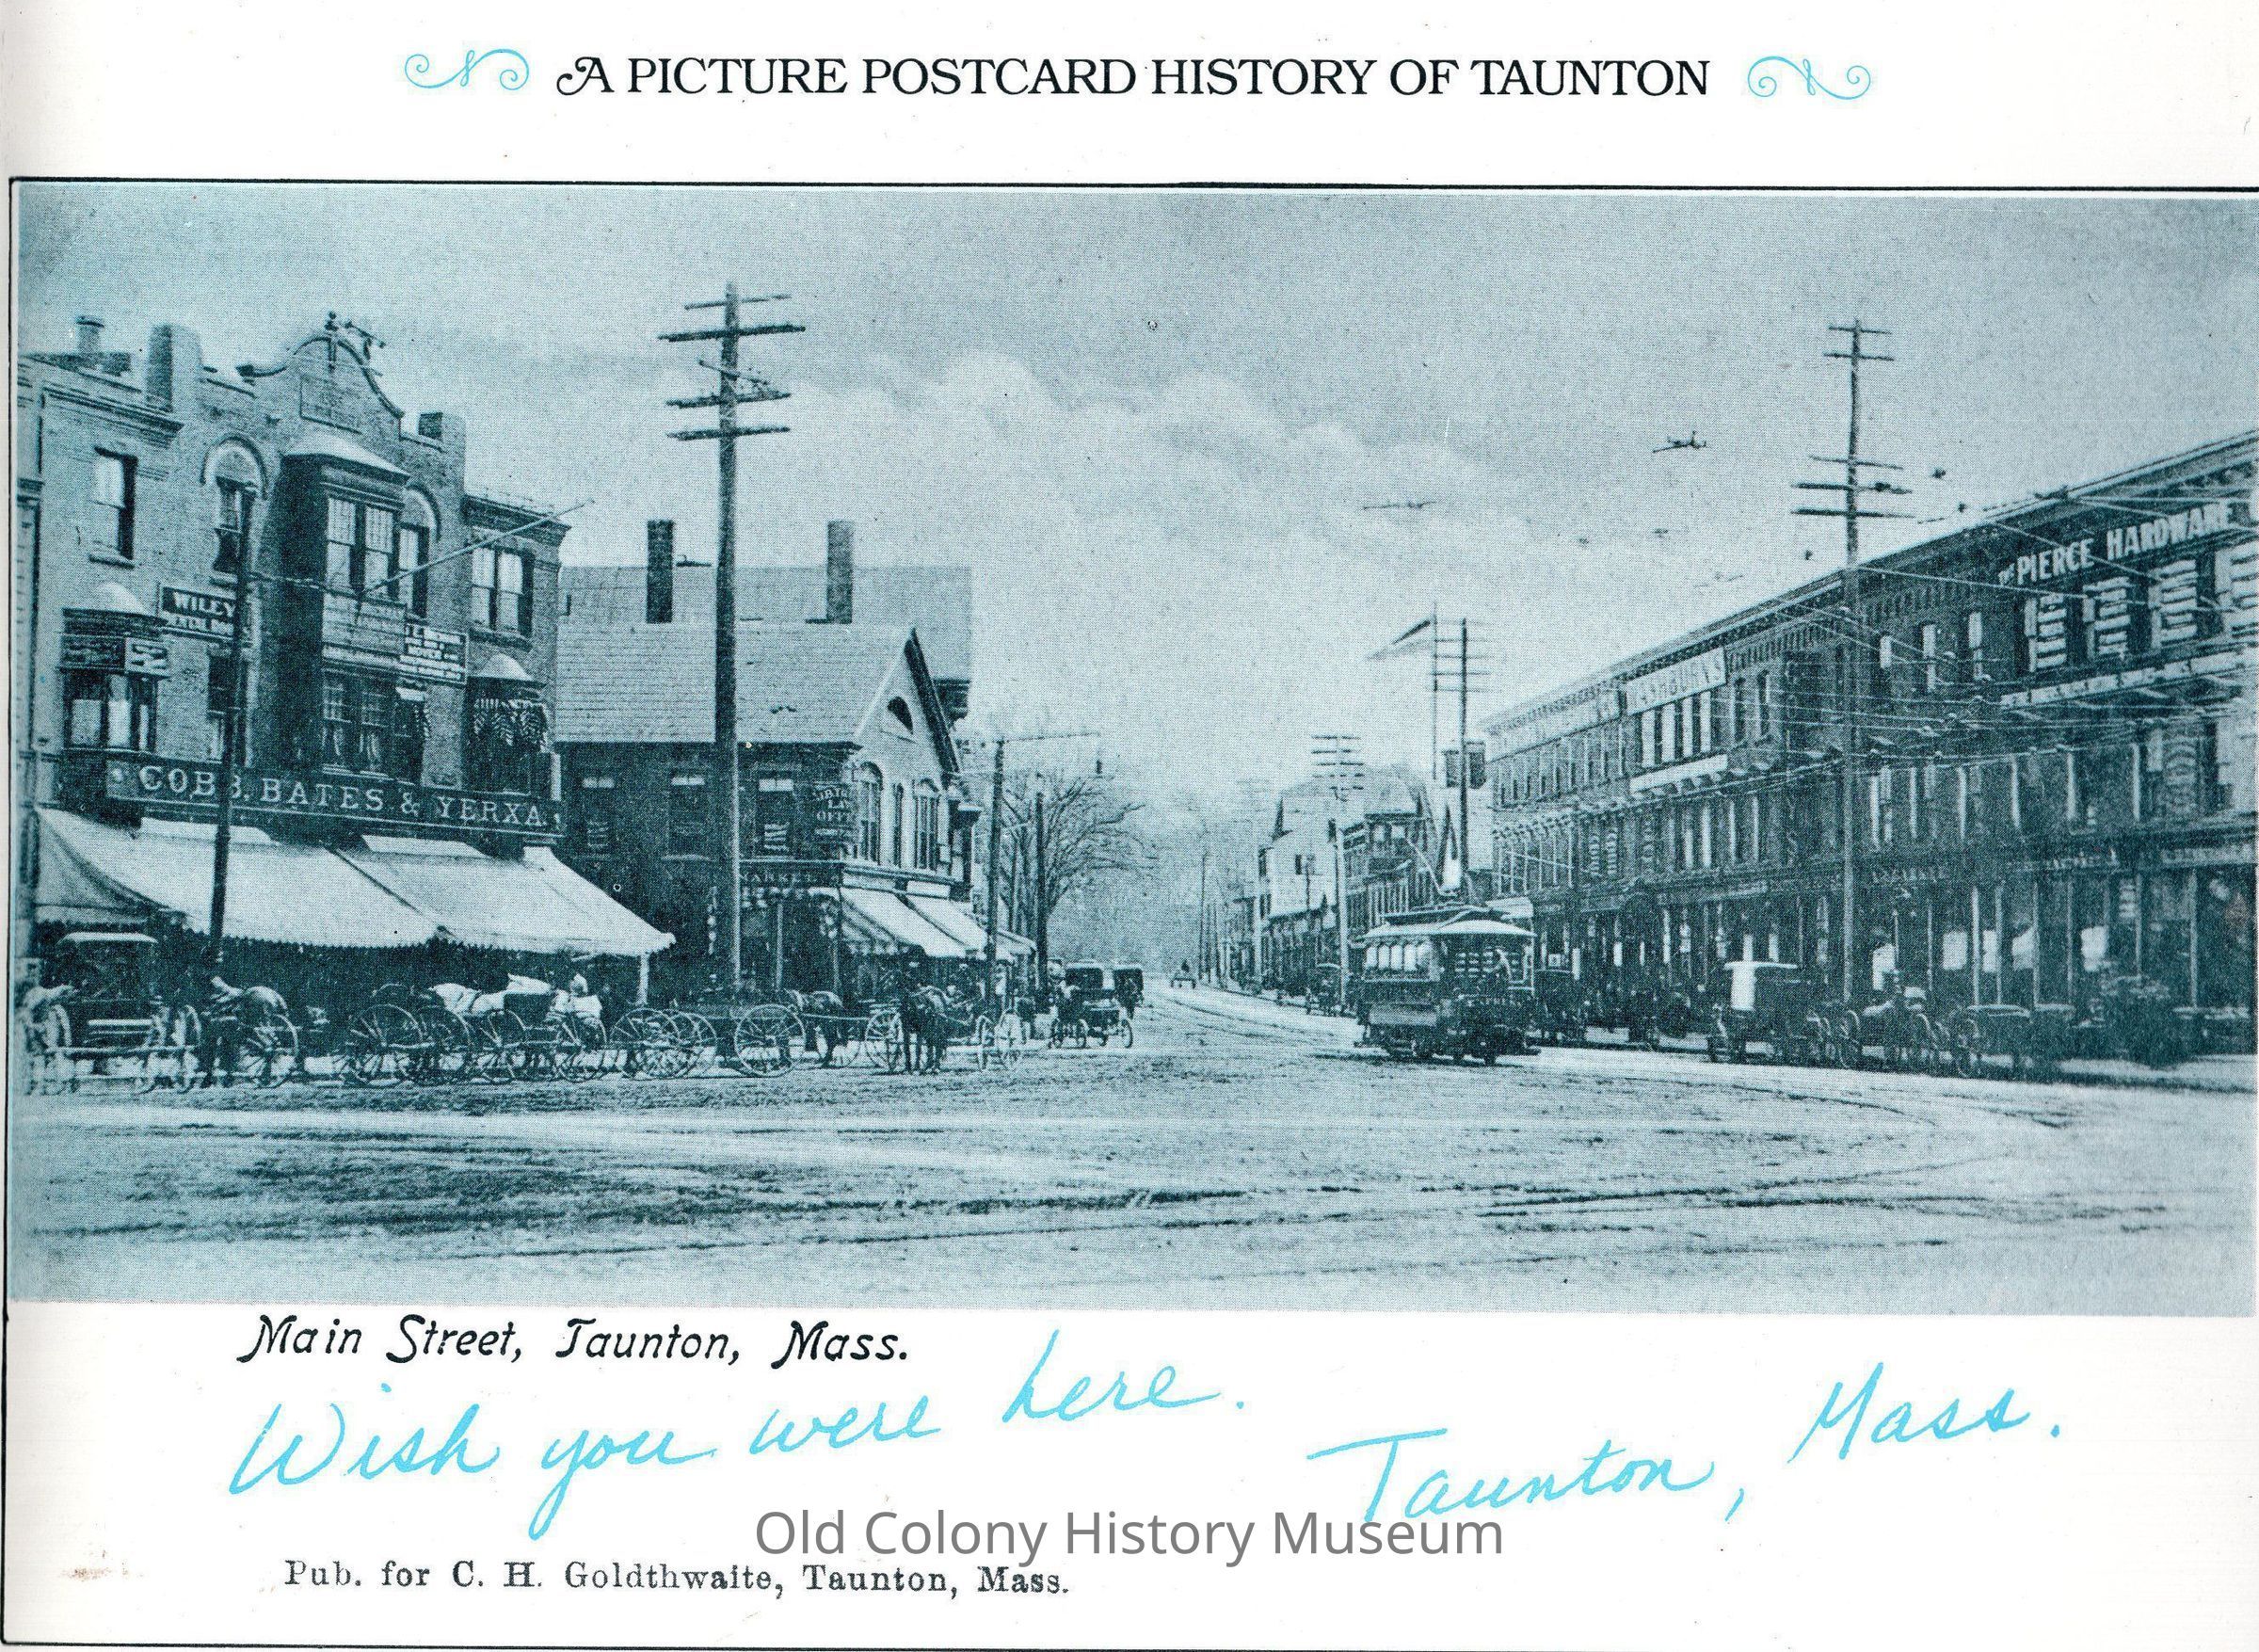 A PICTURE POSTCARD HISTORY OF TAUNTON
WILEY
COBB, BATES & YERXA
LAW
MARKET
WASHBURN'S
THE PIERCE HARDWARE
Main Street, Taunton, Mass.
Wish you were here.
Taunton, Mass.
Old Colony History Museum
Pub. for C. H. Goldthwaite, Taunton, Mass.